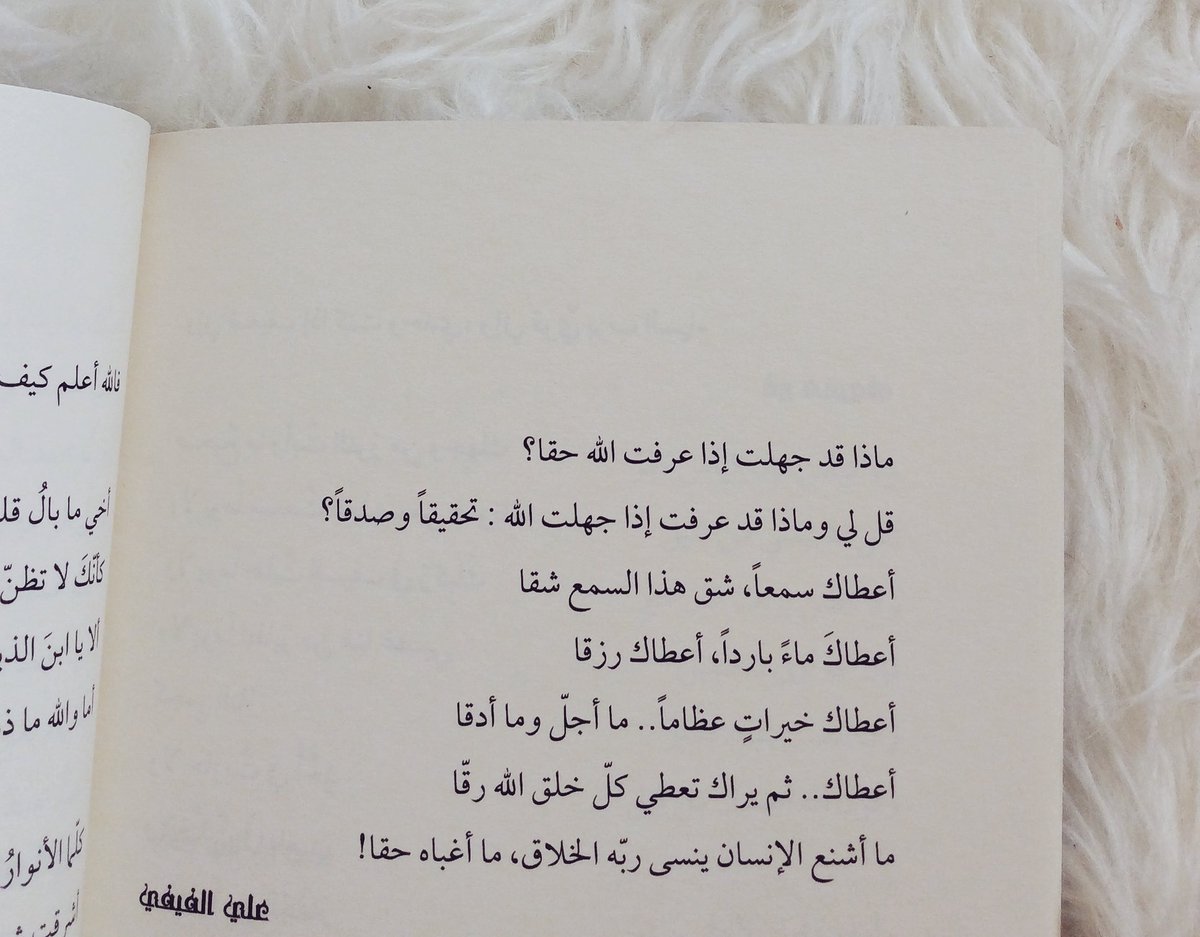 ماذا قد جهلت إذا عرفت الله حقا؟
قل لي وماذا قد عرفت إذا جهلت الله : تحقيقاً وصدقاً؟
أعطاك سمعاً، شق هذا السمع شقا
أعطاكَ ماءً بارداً، أعطاك رزقا
أعطاك خيراتٍ عظاماً.. ما أجلّ وما أدقا
أعطاك.. ثم يراك تعطي كلّ خلق الله رقّا
ما أشنع الإنسان ينسى ربّه الخلاق، ما أغباه حقا!
علي الفيفي
فالله أعلم كيف
أخي ما بالُ
كأنّكَ لا تظنّ
ألا يا ابنَ
أما والله ما
كلّما الأنوارُ
أشرقت